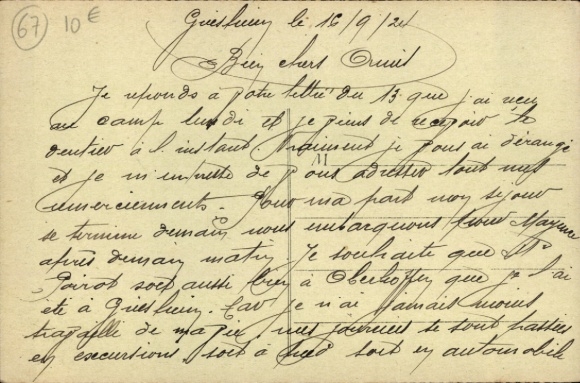 67 10 €
Griesheim le 16/9/21
Bien chers Amis
Je reponds à votre lettre du 13 que j'ai reçu
au camp lundi et je viens de recevoir le
dentier à l'instant. Vraiment je vous ai dérangé
et je m'empresse de vous adresser tout mes
remerciements. Pour ma part mon sejour
se termine demain nous embarquons pour Mayence
après demain matin. Je souhaite que Mr
Poirot soit aussi bien à Oberhoffen que je l'ai
été à Griesheim. Car je n'ai jamais moins
travaillé de ma vie mes journées se sont passées
en excursions soit à pied soit en automobile